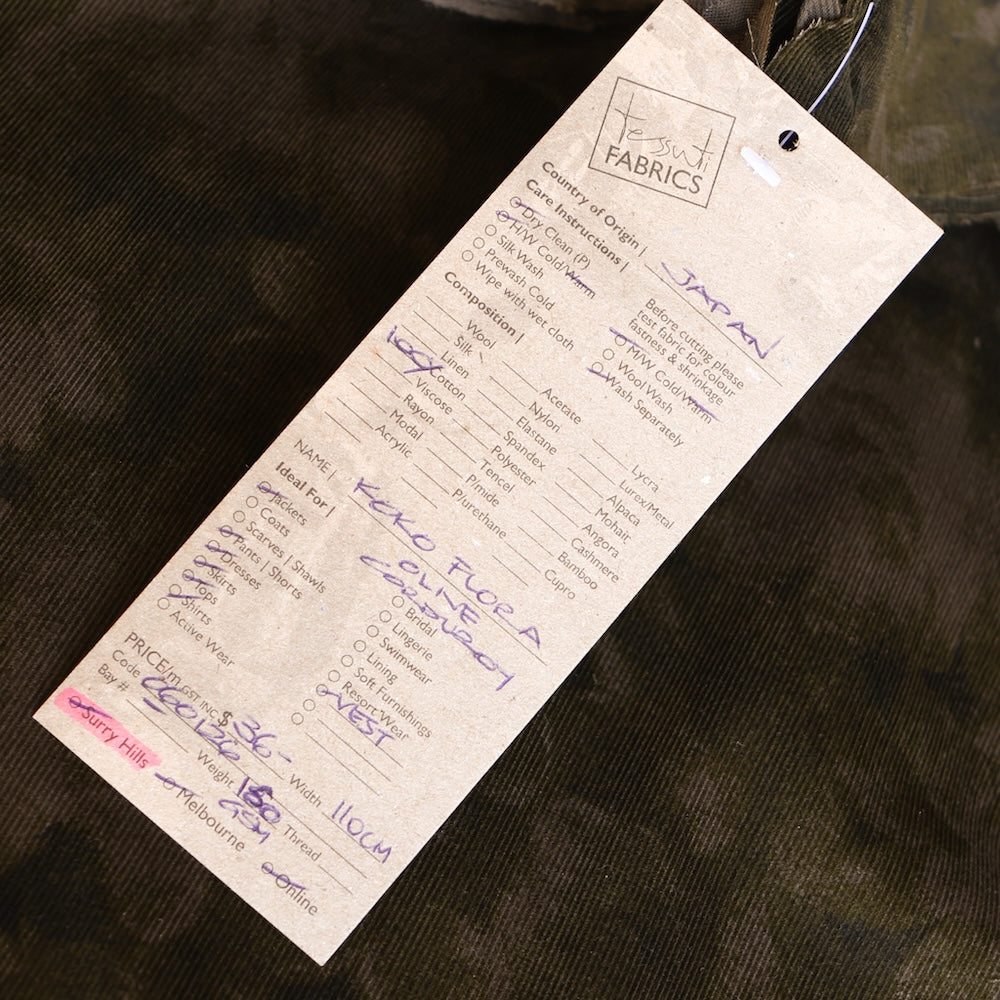 tessuti
FABRICS
Country of Origin | JAPAN
Care Instructions |
Dry Clean (P)
H/W Cold/Warm
Silk Wash
Prewash Cold
Wipe with wet cloth
Before cutting please
test fabric for colour
fastness & shrinkage
M/W Cold/Warm
Wool Wash
Wash Separately
Composition |
Wool
Silk
Linen
100% Cotton
Viscose
Rayon
Modal
Acrylic
Acetate
Nylon
Elastane
Spandex
Polyester
Tencel
P/mide
P/urethane
Lycra
Lurex/Metal
Alpaca
Mohair
Angora
Cashmere
Bamboo
Cupro
NAME | KOKO FLORA
OLIVE
CORDUROY
Ideal For |
Jackets
Coats
Scarves | Shawls
Pants | Shorts
Dresses
Skirts
Tops
Shirts
Active Wear
Bridal
Lingerie
Swimwear
Lining
Soft Furnishings
Resort Wear
VEST
PRICE/m GST INC $ 36-
Code
Bay #
Width 110CM
Weight 150
GSM
Thread
Surry Hills
Melbourne
Online